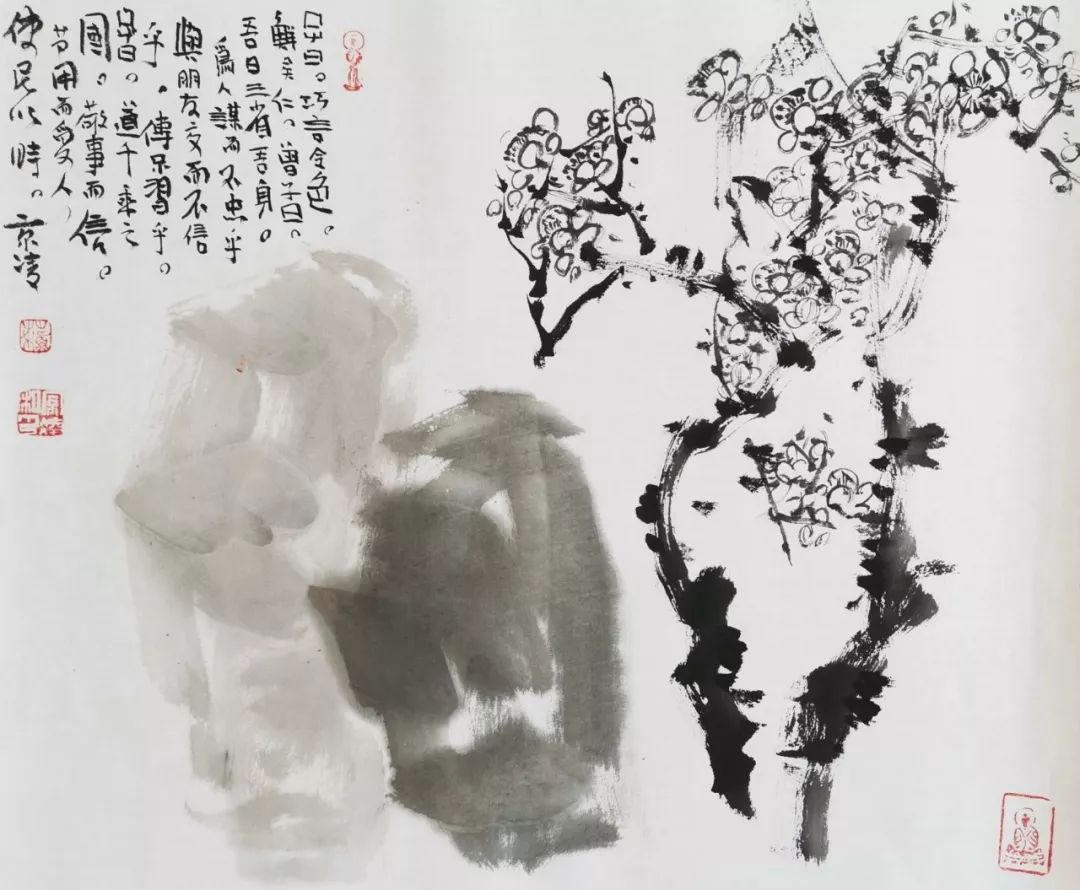 子曰。巧言令色。
鮮矣仁。曾子曰。
吾日三省吾身。
爲人謀而不忠乎
與朋友交而不信
乎。傳不習乎。
子曰。道千乘之
國。敬事而信。
节用而爱人、
使民以時。